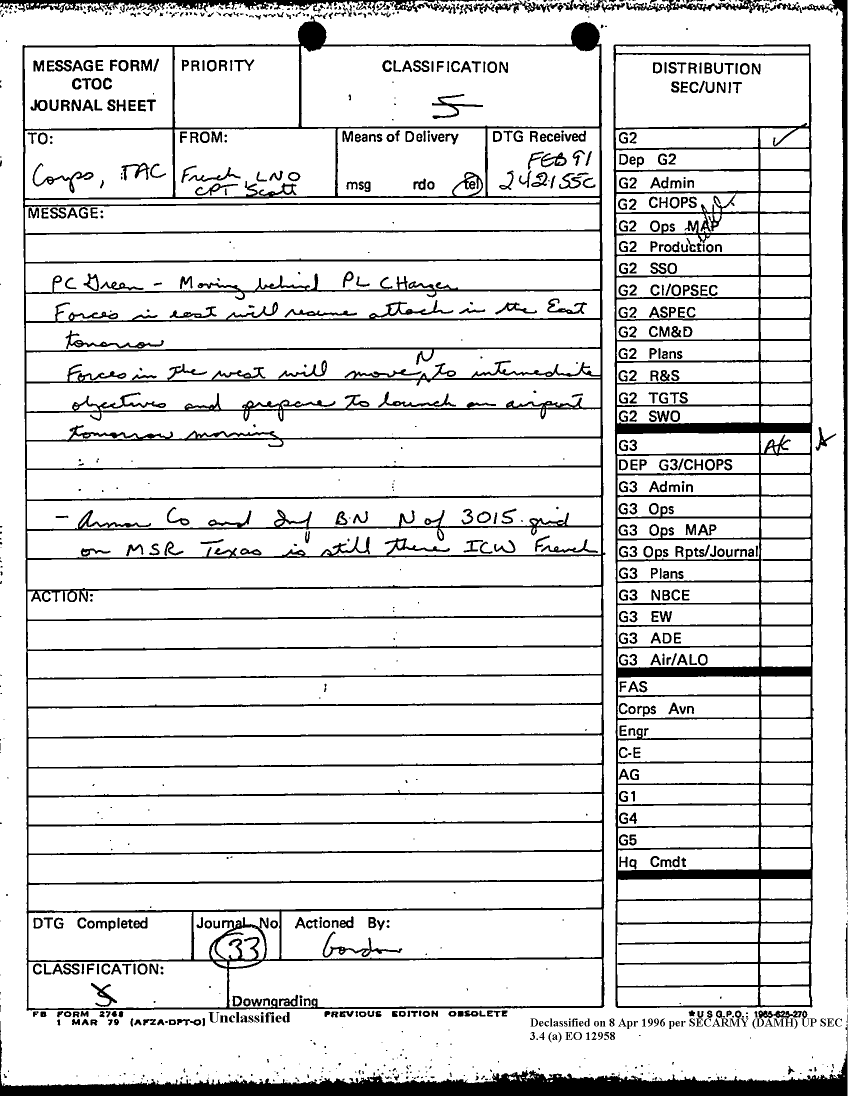 MESSAGE FORM/
CTOC
JOURNAL SHEET
PRIORITY
CLASSIFICATION
S
TO:
Corps, TAC
FROM:
French LNO
CPT Scott
Means of Delivery
msg rdo tel
DTG Received
FEB 91
242155C
MESSAGE:
PC Green - Moving behind PL CHarger
Forces in east will resume attack in the East
tomorrow
Forces in the west will move N to intermediate
objectives and prepare to launch on airport
tomorrow morning
- Armor Co and Inf BN N of 3015 grid
on MSR Texas is still there ICW French
ACTION:
DTG Completed
Journal No.
33
Actioned By:
Gordon
CLASSIFICATION:
S
Downgrading
FB FORM 2768
1 MAR 79 (AFZA-DPT-O)
Unclassified
PREVIOUS EDITION OBSOLETE
★U S G.P.O.: 1985-625-270
Declassified on 8 Apr 1996 per SECARMY (DAMH) UP SEC
3.4 (a) EO 12958
DISTRIBUTION
SEC/UNIT
G2
Dep G2
G2 Admin
G2 CHOPS
G2 Ops MAP
G2 Production
G2 SSO
G2 CI/OPSEC
G2 ASPEC
G2 CM&D
G2 Plans
G2 R&S
G2 TGTS
G2 SWO
G3 A/C
DEP G3/CHOPS
G3 Admin
G3 Ops
G3 Ops MAP
G3 Ops Rpts/Journal
G3 Plans
G3 NBCE
G3 EW
G3 ADE
G3 Air/ALO
FAS
Corps Avn
Engr
C-E
AG
G1
G4
G5
Hq Cmdt